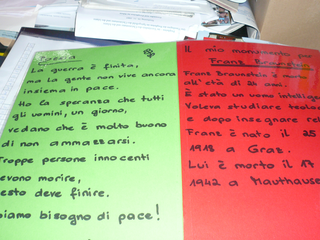 Poesia
La guerra è finita,
ma la gente non vive ancora
insiema in pace.
Ho la speranza che tutti
gli uomini, un giorno,
vedano che è molto buono
di non ammazzarsi.
Troppe persone innocenti
devono morire,
esto deve finire.
biamo bisogno di pace!
Il mio monumento per
Franz Braunstein
Franz Braunstein è morto
all'età di 24 ani.
È stato un uomo intellige
Voleva studiare teolo
e dopo insegnare rel
Franz è nato il 25
1918 a Graz.
Lui è morto il 17
1942 a Mauthause